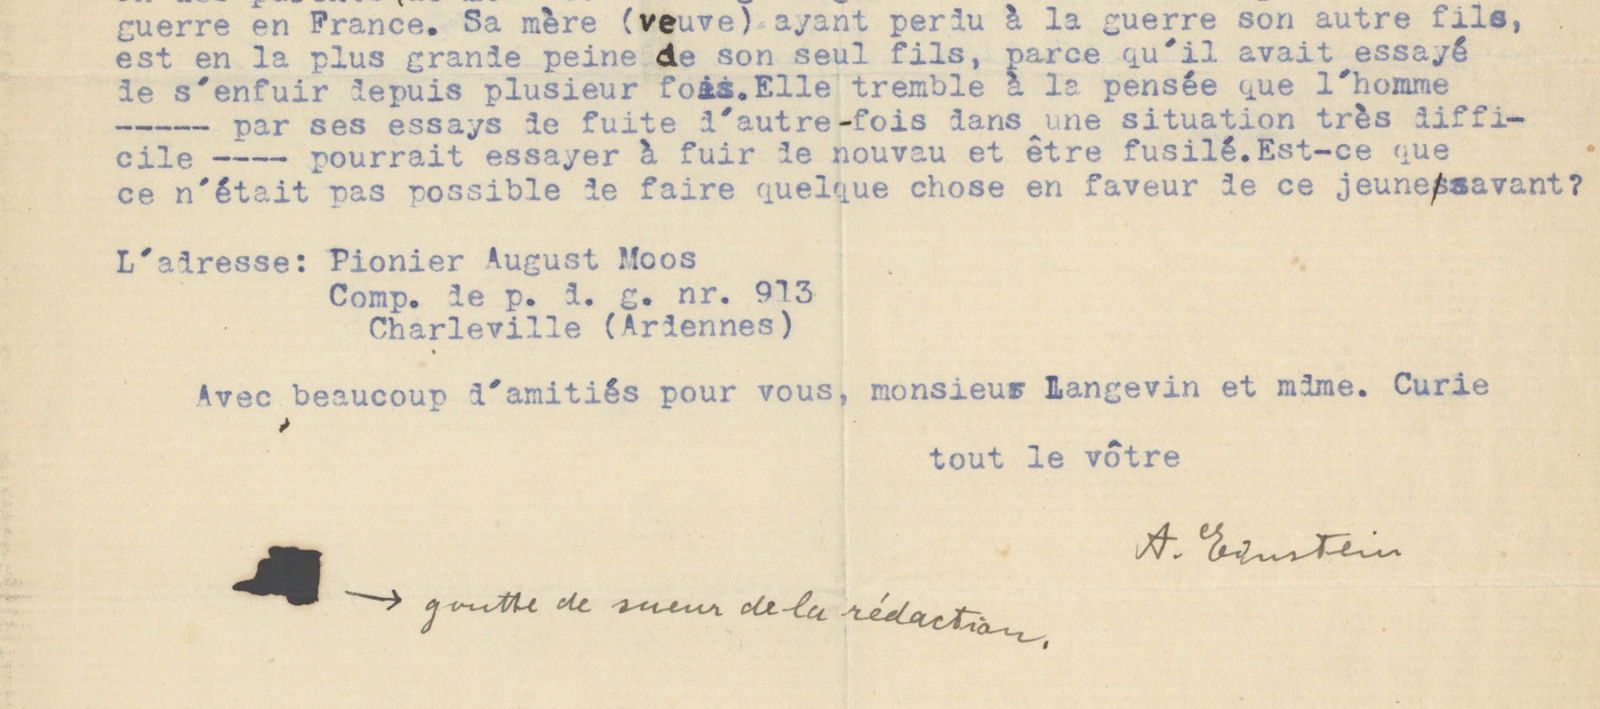 guerre en France. Sa mère (veuve) ayant perdu à la guerre son autre fils,
est en la plus grande peine de son seul fils, parce qu'il avait essayé
de s'enfuir depuis plusieur fois.Elle tremble à la pensée que l'homme
----- par ses essays de fuite d'autre-fois dans une situation très diffi-
cile ---- pourrait essayer à fuir de nouvau et être fusilé.Est-ce que
ce n'était pas possible de faire quelque chose en faveur de ce jeune savant?
L'adresse: Pionier August Moos
Comp. de p. d. g. nr. 913
Charleville (Ardennes)
Avec beaucoup d'amitiés pour vous, monsieur Langevin et mdme. Curie
tout le vôtre
A. Einstein
→ goutte de sueur de la rédaction.